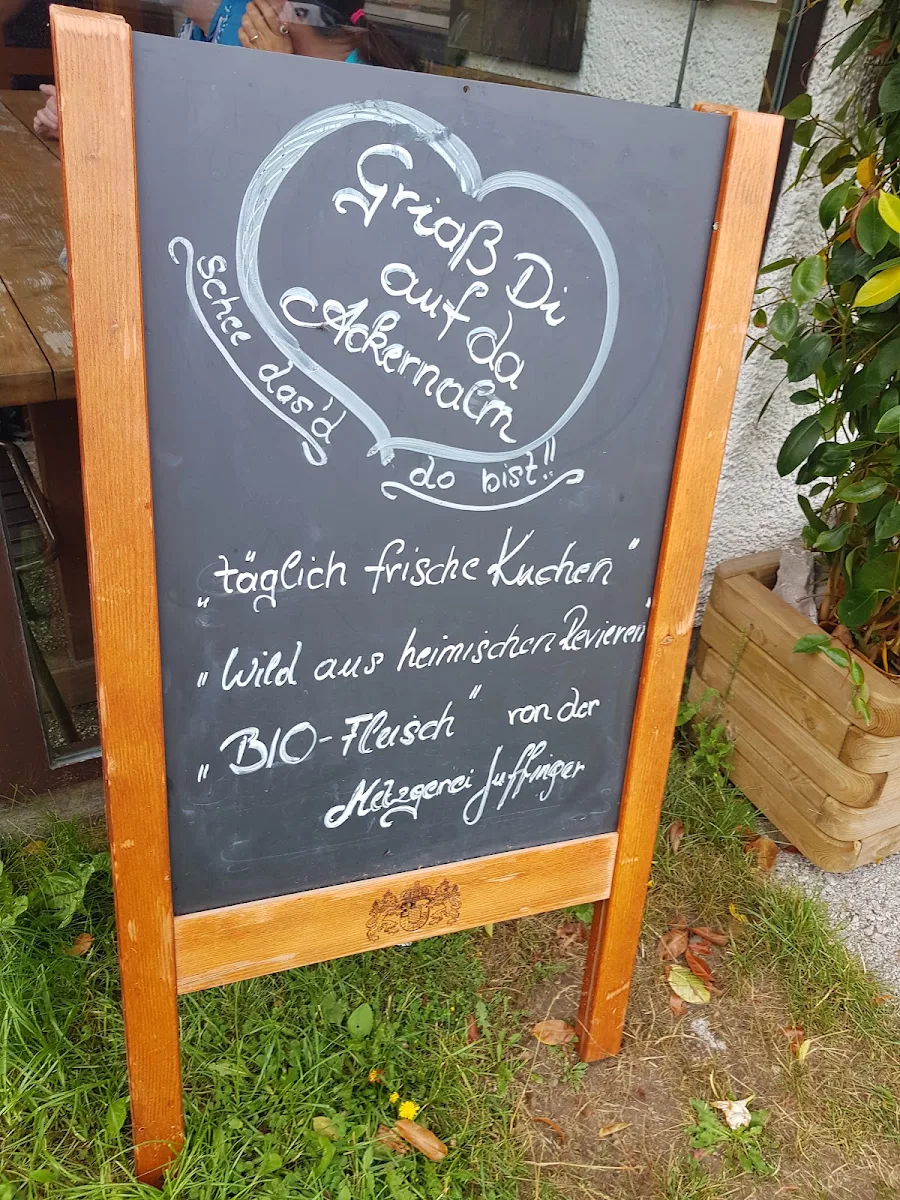 Griaß Di
auf da
Ackernalm
Schee das'd
do bist!!
"täglich frische Kuchen"
"Wild aus heimischen Revieren"
"BIO-Fleisch" von der
Metzgerei Juffinger